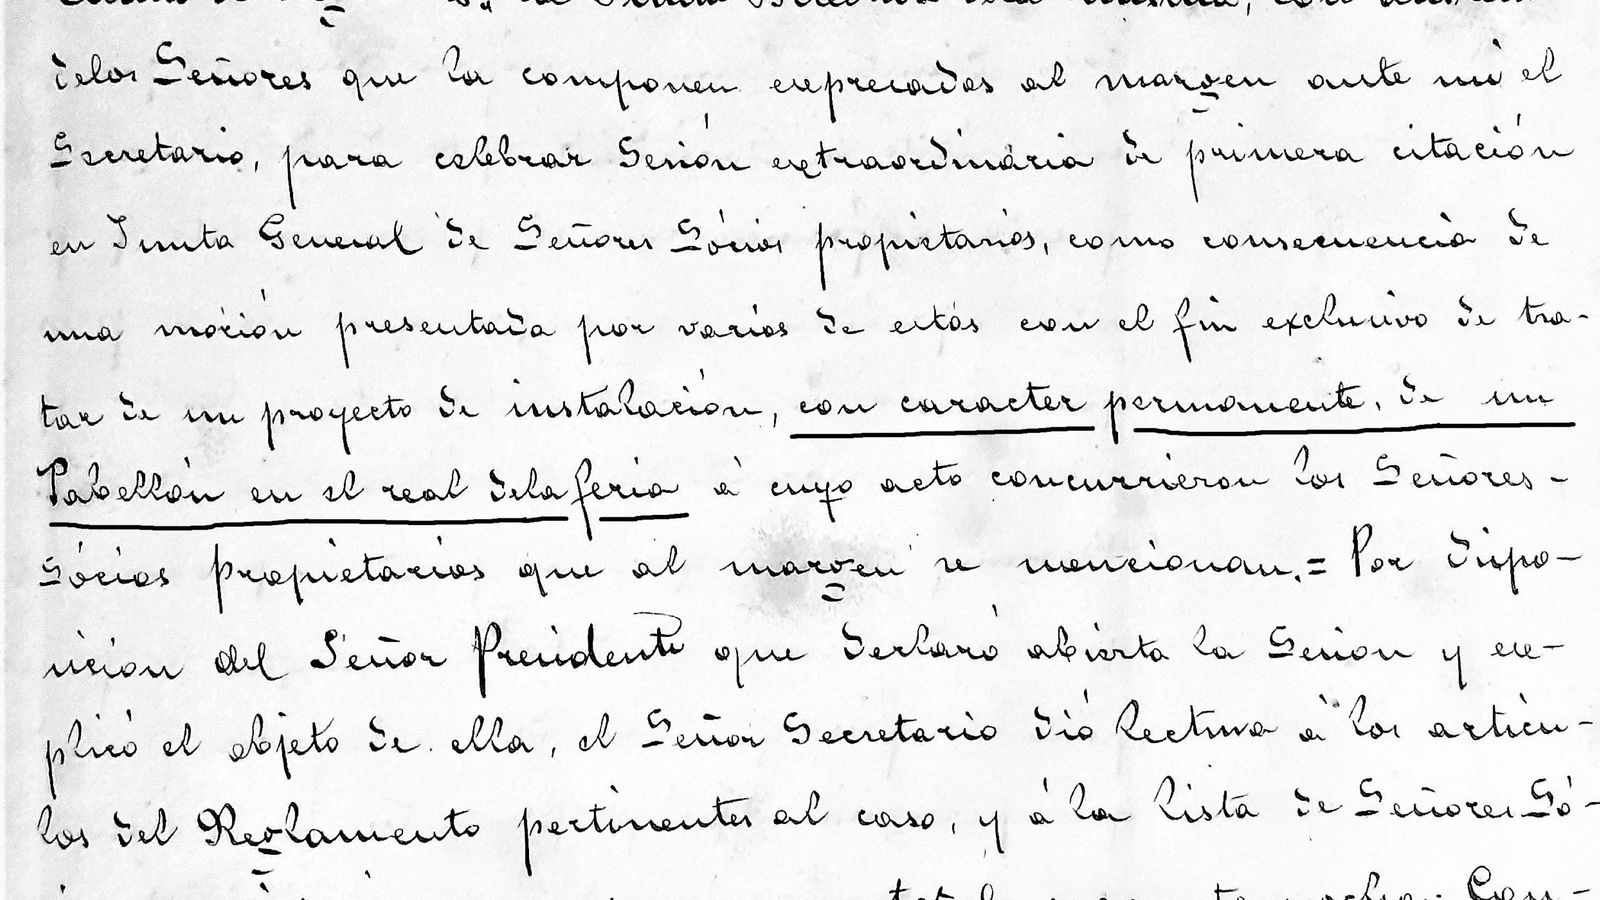 delos Señores que la componen expresados al margen ante mi el
Secretario, para celebrar Sesión extraordinária de primera citación
en Junta General de Señores Sócios propietarios, como consecuencia de
una moción presentada por varios de estos con el fin exclusivo de tra-
tar de un proyecto de instalación, con caracter permanente, de un
Pabellón en el real dela feria á cuyo acto concurrieron los Señores-
Sócios propietarios que al margen se mencionan.= Por dispo-
sición del Señor Presidente que declaró abierta la Sesion y ex-
plicó el objeto de ella, el Señor Secretario dió lectura á los articu-
los del Reglamento pertinentes al caso, y á la lista de Señores Só-